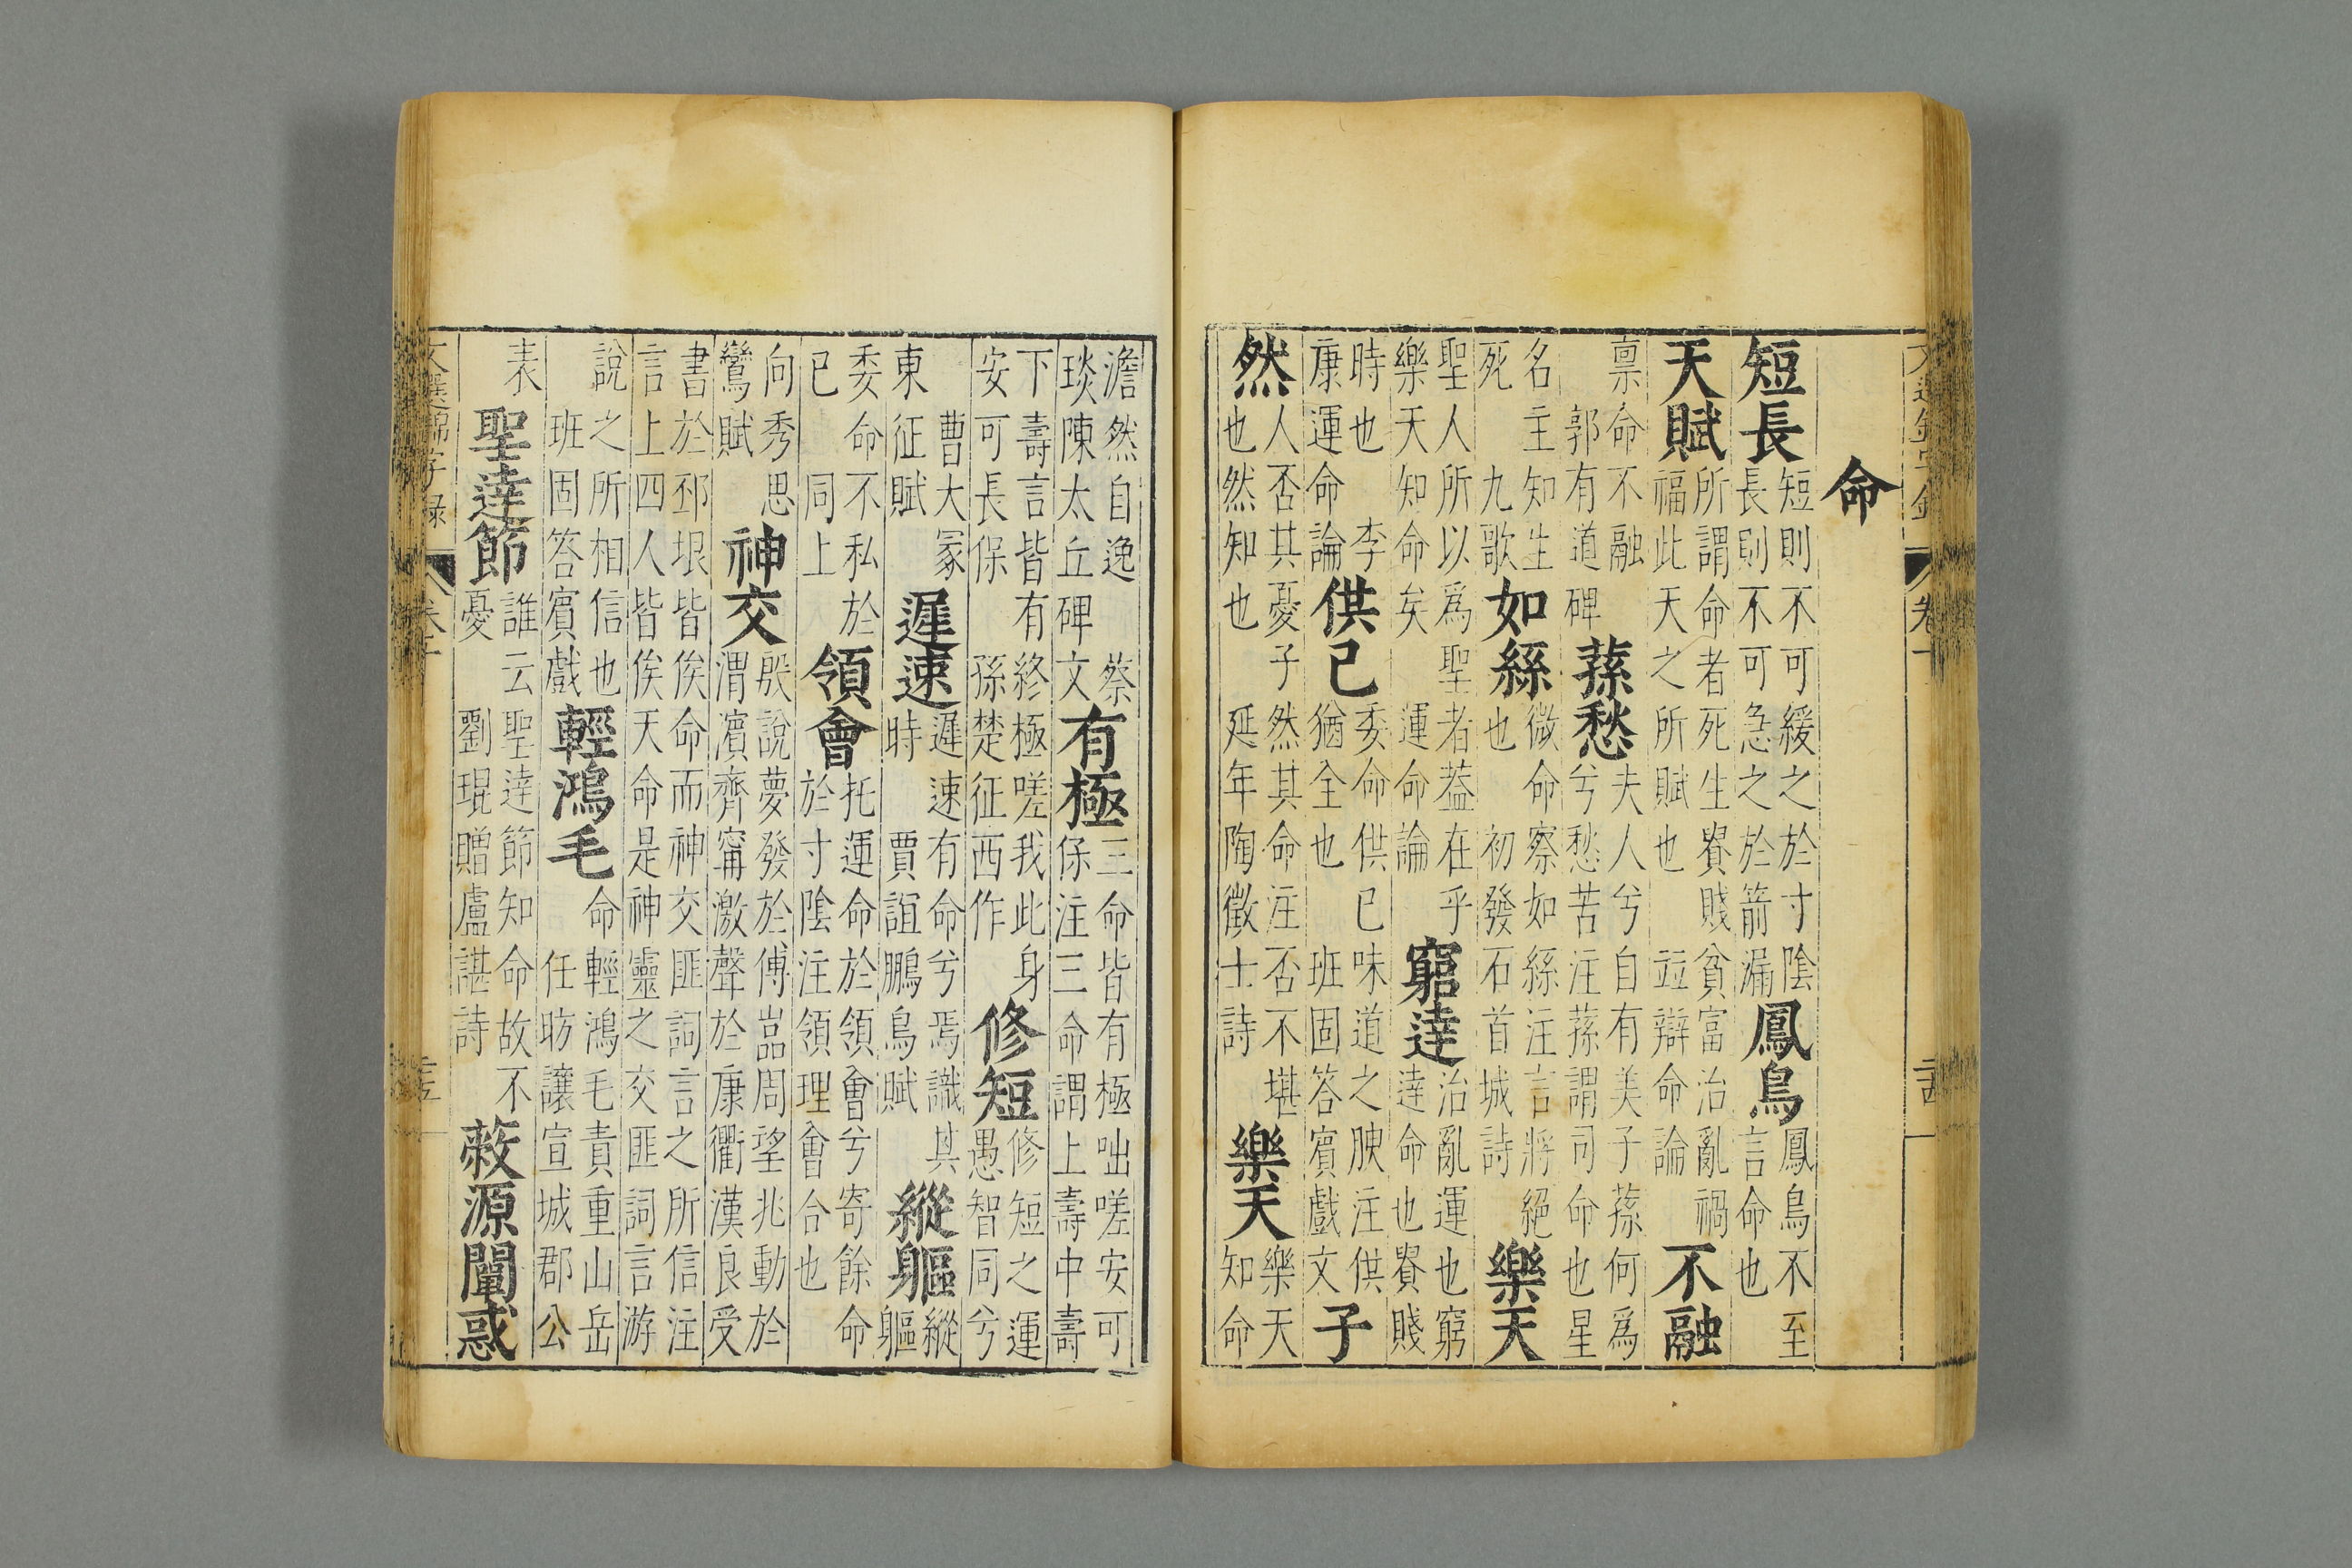 命
短長短則不可緩之於寸陰長則不可急之於箭漏鳳鳥鳳鳥不至言命也
天賦所謂命者死生貴賤貧富治亂禍福此天之所賦也竝辯命論不融
禀命不融郭有道碑蓀愁夫人兮自有美子蓀何為兮愁苦注蓀謂司命也星
名主知生死九歌如絲微命察如絲注言將絕也初發石首城詩樂天
聖人所以為聖者蓋在乎樂天知命矣運命論窮達治亂運也窮達命也貴賤
時也李康運命論供己委命供已味道之腴注供猶全也班固答賓戲文子
然人否其憂子然其命注否不堪也然知也延年陶徵士詩樂天樂天知命
澹然自逸蔡琰陳太丘碑文有極三命皆有極咄嗟安可保注三命謂上壽中壽
下壽言皆有終極嗟我此身安可長保孫楚征西作修短修短之運愚智同兮
曹大冢東征賦遲速遲速有命兮焉識其時賈誼鵬鳥賦縱軀縱軀
委命不私於已同上領會托運命於領會兮寄餘命於寸陰注領理會合也
向秀思鸞賦神交殷說夢發於傅嵓周望兆動於渭濵齊甯激聲於康衢漢良受
書於邳垠皆俟命而神交匪詞言之所信注言上四人皆俟天命是神靈之交匪詞言游
說之所相信也班固答賓戲輕鴻毛命輕鴻毛責重山岳任昉讓宣城郡公
表聖達節誰云聖達節知命故不憂劉琨贈盧諶詩蔽源闡惑
文選錦字錄